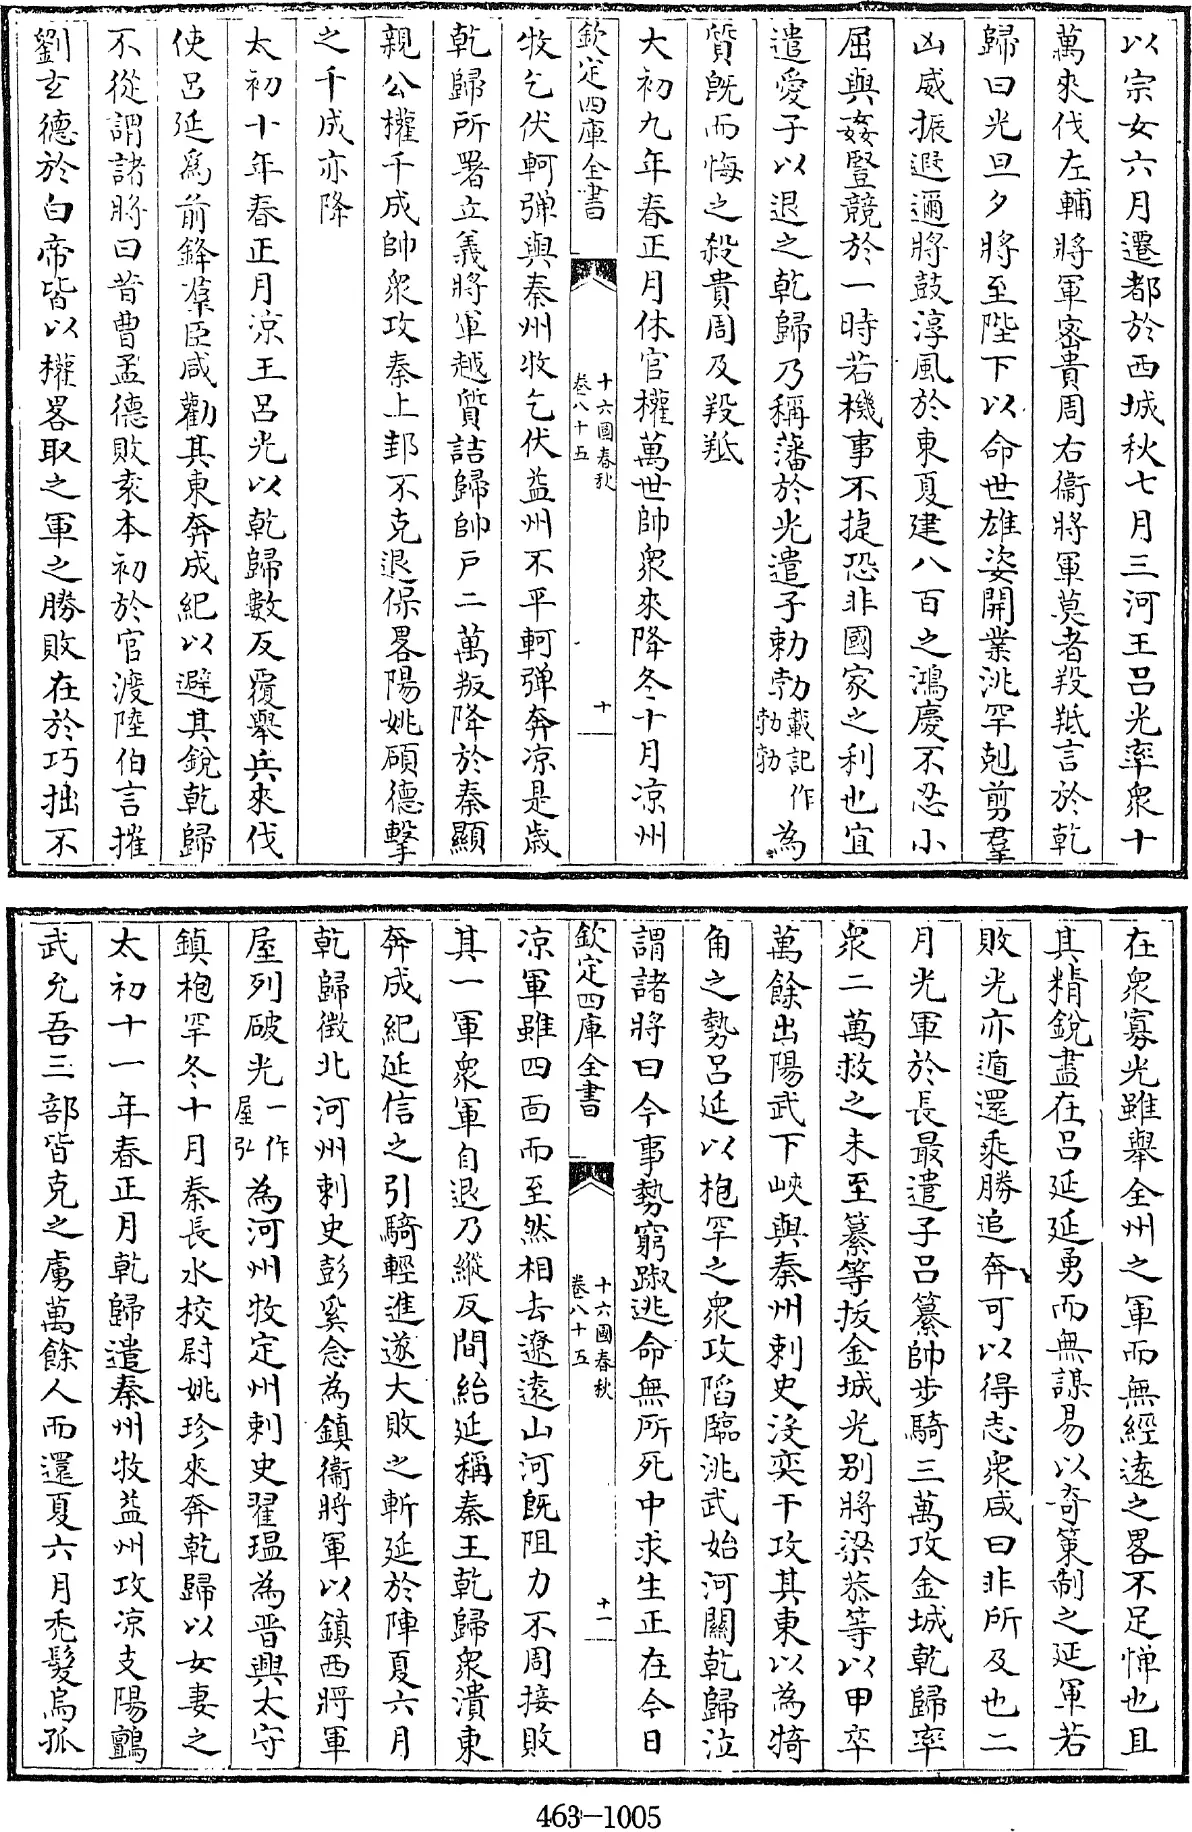 以宗女六月遷都於西城秋七月三河王呂光率衆十
萬來伐左輔將軍密貴周右衞將軍莫者羖羝言於乾
歸曰光旦夕將至陛下以命世雄姿開業洮罕剋剪羣
凶威振遐邇將鼓淳風於東夏建八百之鴻慶不忍小
屈與姦豎競於一時若機事不捷恐非國家之利也宜
遣愛子以退之乾歸乃稱藩於光遣子勅勃載記作勃勃為
質旣而悔之殺貴周及羖羝
大初九年春正月休官權萬世帥衆來降冬十月凉州
欽定四庫全書 十六國春秋 卷八十五 十
牧乞伏軻彈與秦州牧乞伏益州不平軻彈奔凉是歲
乾歸所署立義將軍越質詰歸帥戸二萬叛降於秦顯
親公權千成帥衆攻秦上邽不克退保畧陽姚碩德擊
之千成亦降
太初十年春正月凉王呂光以乾歸數反覆舉兵來伐
使呂延爲前鋒羣臣咸勸其東奔成紀以避其銳乾歸
不從謂諸將曰昔曹孟德敗袁本初於官渡陸伯言摧
劉玄德於白帝皆以權畧取之軍之勝敗在於巧拙不
在衆寡光雖舉全州之軍而無經遠之畧不足憚也且
其精銳盡在呂延延勇而無謀易以奇策制之延軍若
敗光亦遁還乘勝追奔可以得志衆咸曰非所及也二
月光軍於長最遣子呂纂帥步騎三萬攻金城乾歸率
衆二萬救之未至纂等拔金城光別將梁恭等以甲卒
萬餘出陽武下峽與秦州刺史沒奕干攻其東以為犄
角之勢呂延以枹罕之衆攻陷臨洮武始河關乾歸泣
謂諸將曰今事勢窮踧逃命無所死中求生正在今日
欽定四庫全書 十六國春秋 卷八十五 十一
凉軍雖四面而至然相去遼遠山河旣阻力不周接敗
其一軍衆軍自退乃縱反間紿延稱秦王乾歸衆潰東
奔成紀延信之引騎輕進遂大敗之斬延於陣夏六月
乾歸徵北河州刺史彭奚念為鎮衞將軍以鎮西將軍
屋列破光一作屋弘為河州牧定州刺史翟瑥為晉興太守
鎮枹罕冬十月秦長水校尉姚珍來奔乾歸以女妻之
太初十一年春正月乾歸遣秦州牧益州攻凉支陽鸇
武允吾三部皆克之虜萬餘人而還夏六月禿髮烏孤
463-1005